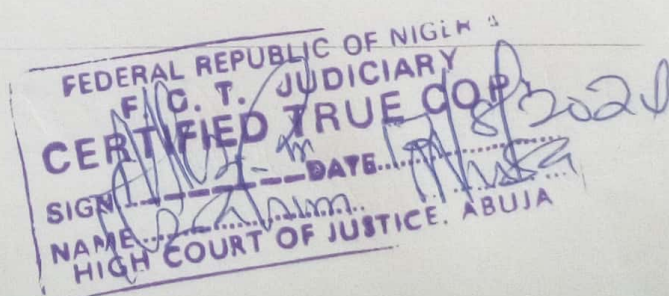 FEDERAL REPUBLIC OF NIGER
F. C. T. JUDICIARY
CERTIFIED TRUE COPY
SIGN DATE /8/202
NAME
HIGH COURT OF JUSTICE, ABUJA